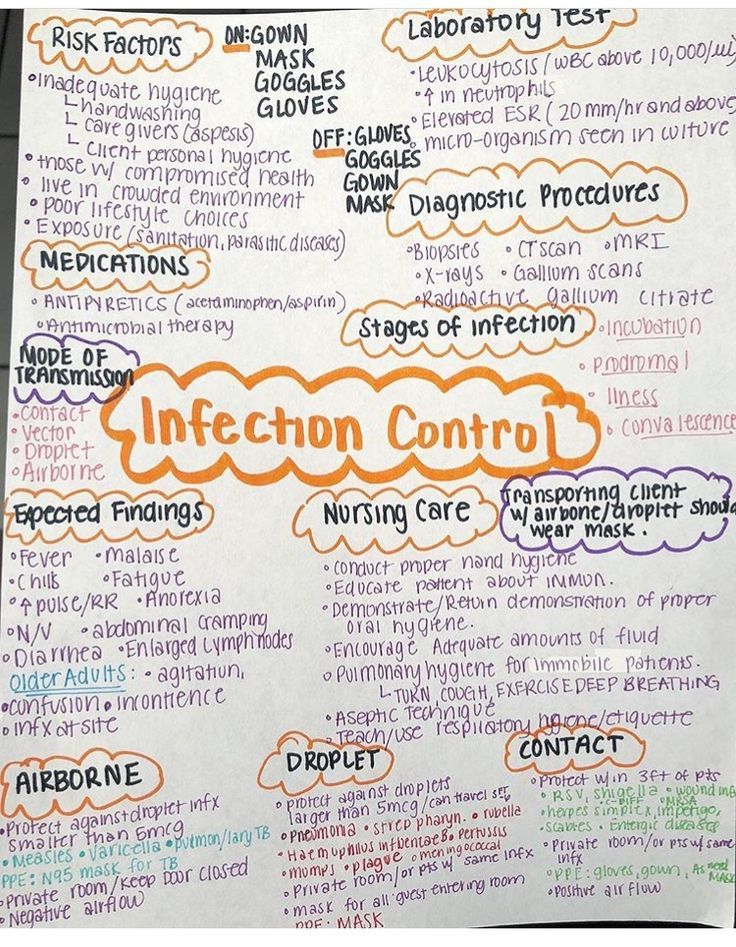 RISK FACTORS
• Inadequate hygiene
└ handwashing
└ care givers (aspesis)
└ client personal hygiene
• those w/ compromised health
• live in crowded environment
• poor lifestyle choices
• Exposure (sanitation, parasitic diseases)
ON: GOWN
MASK
GOGGLES
GLOVES
OFF: GLOVES
GOGGLES
GOWN
MASK
Laboratory Test
• Leukocytosis (WBC above 10,000/ul)
• ↑ in neutrophils
• Elevated ESR (20 mm/hr and above)
• micro-organism seen in culture
Diagnostic Procedures
• Biopsies • CT scan • MRI
• X-rays • Gallium scans
• Radioactive gallium citrate
MEDICATIONS
• ANTIPYRETICS (acetaminophen/aspirin)
• Antimicrobial therapy
Stages of infection
• Incubation
• prodromal
• Ilness
• convalescence
MODE OF
TRANSMISSION
• contact
• vector
• Droplet
• Airborne
Infection Control
Expected Findings
• Fever • malaise
• Chills • Fatigue
• ↑ pulse/RR • Anorexia
• N/V • abdominal cramping
• Diarrhea • Enlarged lymphnodes
Older Adults: • agitation,
• confusion • incontience
• infx at site
Nursing Care
• conduct proper hand hygiene
• Educate patient about IMMUN.
• Demonstrate/Return demonstration of proper
oral hygiene.
• Encourage Adequate amounts of fluid
• Pulmonary hygiene for immobile patients.
└ TURN, COUGH, EXERCISE DEEP BREATHING
• Aseptic Technique
• Teach/use respiratory hgiene/etiquette
Transporting client
w/ airbone/droplet should
wear mask.
AIRBORNE
• Protect against droplet infx
smaller than 5mcg
• Measles • varicella • pulmon/lary TB
PPE: N95 mask for TB
• Private room/Keep Door closed
• Negative airflow
DROPLET
• protect against droplets
larger than 5mcg/can travel
• Pneumonia • strep pharyn. • rubella
• Haemuphilus influentae B • Pertussis
• mumps • plague • meningococcal
• Private room/or pts w/ same infx
• mask for all guest entering room
PPE: MASK
CONTACT
• Protect w/in 3ft of pts
• RSV, shigella • wound inf
• C-DIFF • MRSA
• herpes simplex, impetigo,
• scabies • Entergic diseases
• Private room/or pts w/ same
infx
• PPE: gloves, gown, As need
MASK
• Positive airflow